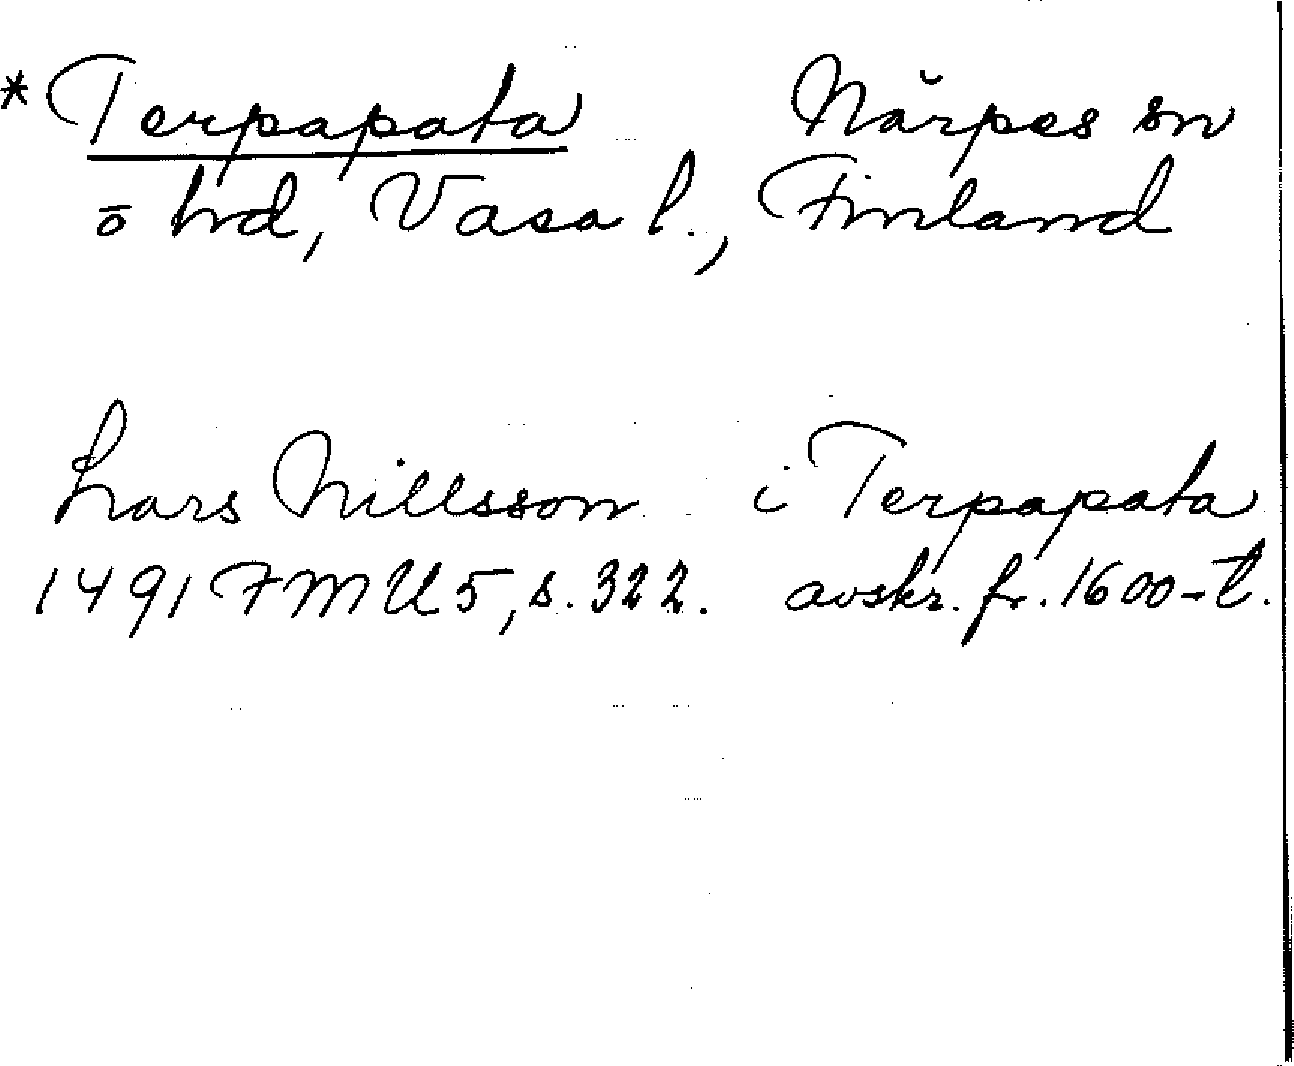 *Terpapata Närpes sn
ö hd, Vasa l., Finland
Lars Nillsson i Terpapata
1491 FMU 5, s. 322. avskr. fr. 1600-t.